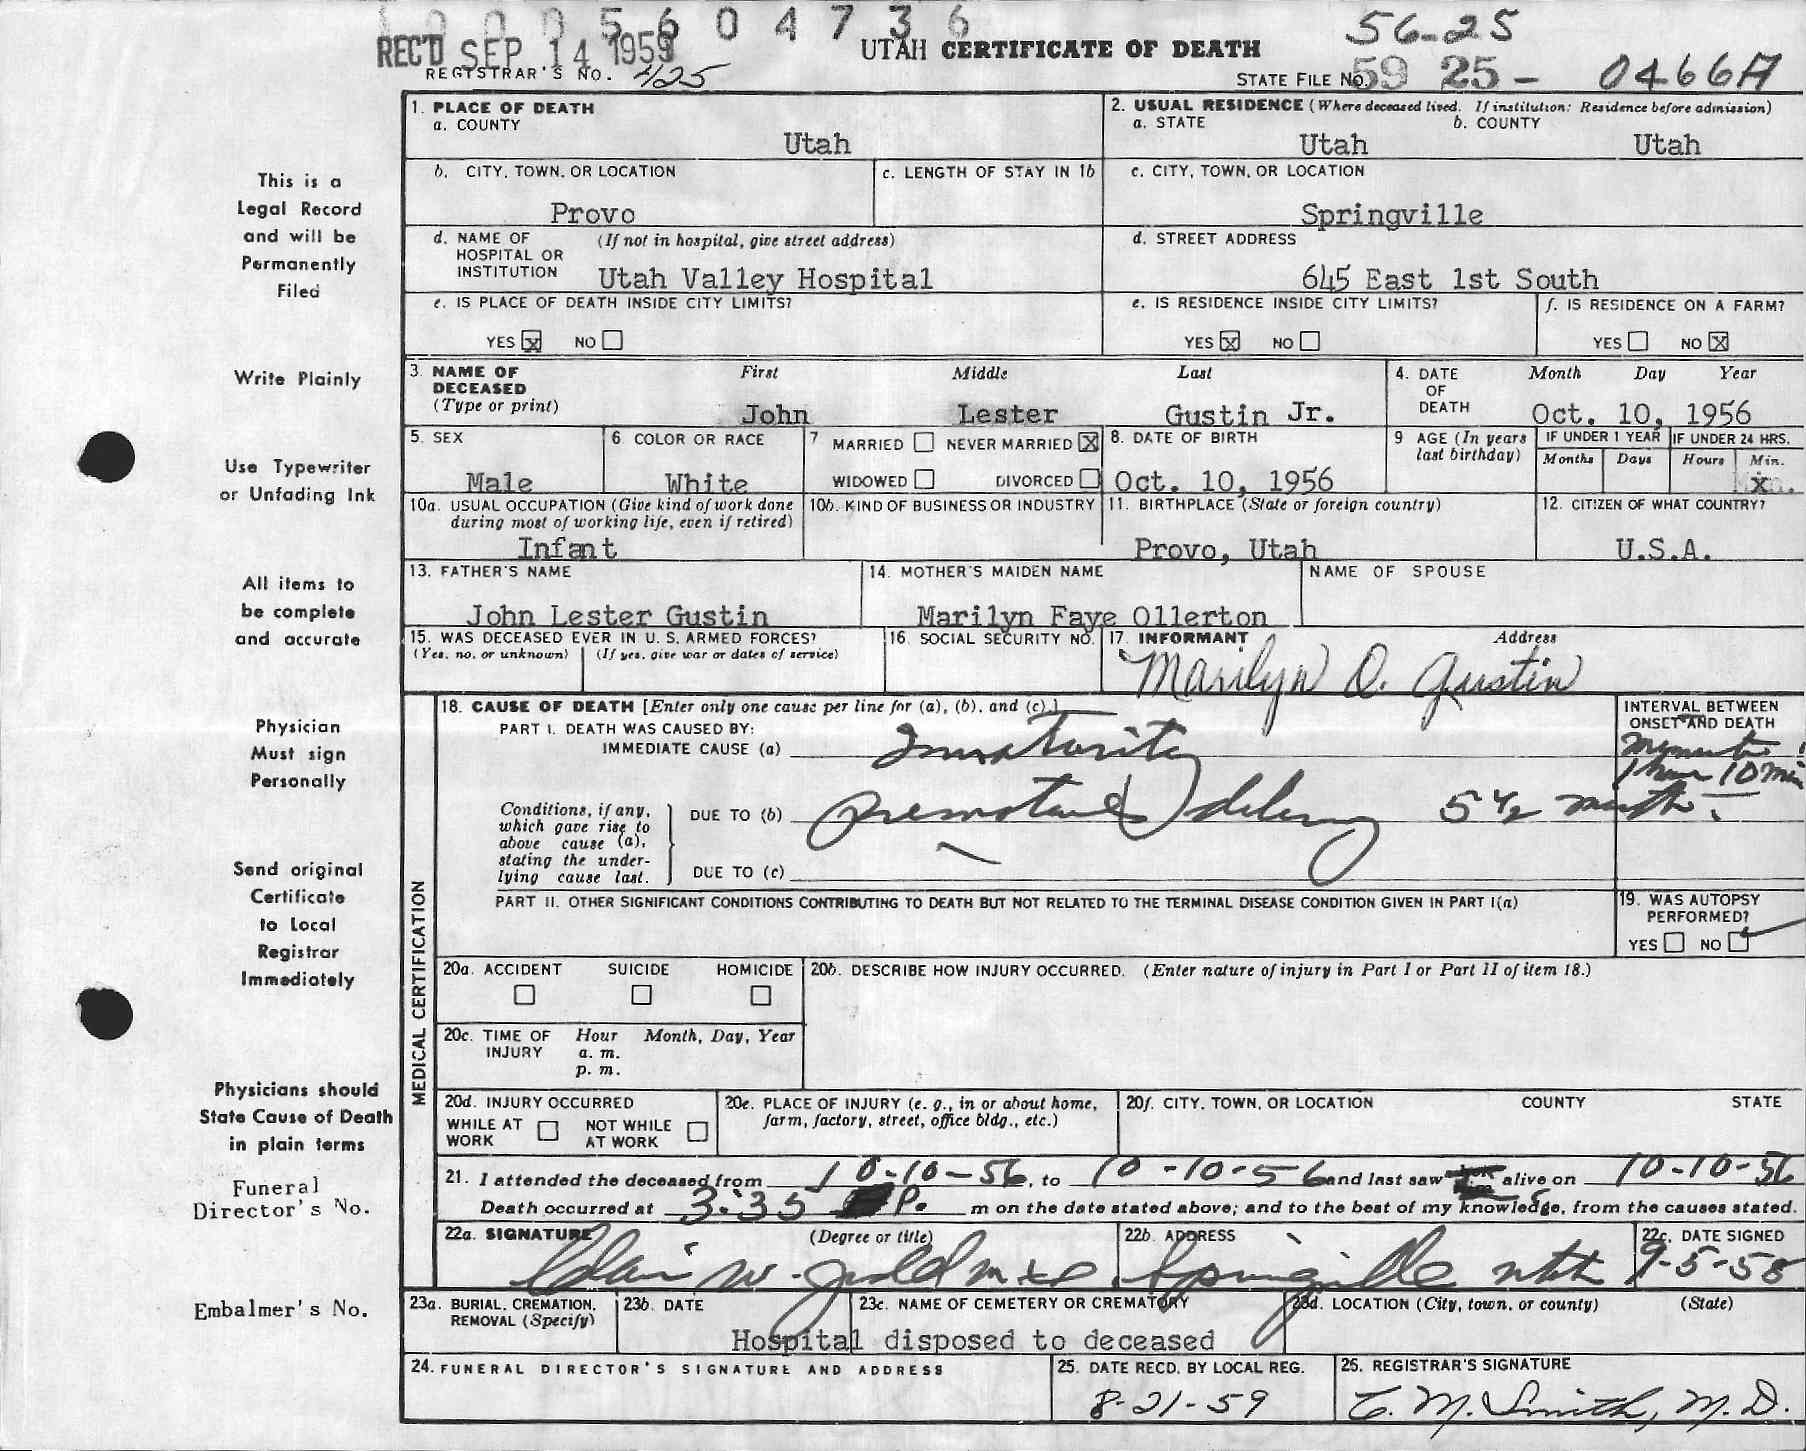 0005604736
REC'D SEP 14 1959
UTAH CERTIFICATE OF DEATH
56-25
REGISTRAR'S NO. 425
STATE FILE No. 59 25- 0466A
This is a
Legal Record
and will be
Permanently
Filed
Write Plainly
Use Typewriter
or Unfading Ink
All items to
be complete
and accurate
Physician
Must sign
Personally
Send original
Certificate
to Local
Registrar
Immediately
Physicians should
State Cause of Death
in plain terms
Funeral
Director's No.
Embalmer's No.
1. PLACE OF DEATH
a. COUNTY
Utah
2. USUAL RESIDENCE (Where deceased lived. If institution: Residence before admission)
a. STATE b. COUNTY
Utah Utah
b. CITY, TOWN, OR LOCATION
Provo
c. LENGTH OF STAY IN 1b
c. CITY, TOWN, OR LOCATION
Springville
d. NAME OF (If not in hospital, give street address)
HOSPITAL OR
INSTITUTION Utah Valley Hospital
d. STREET ADDRESS
645 East 1st South
e. IS PLACE OF DEATH INSIDE CITY LIMITS?
YES x NO
e. IS RESIDENCE INSIDE CITY LIMITS?
YES x NO
f. IS RESIDENCE ON A FARM?
YES NO x
3. NAME OF First Middle Last
DECEASED
(Type or print) John Lester Gustin Jr.
4. DATE Month Day Year
OF
DEATH Oct. 10, 1956
5. SEX
Male
6. COLOR OR RACE
White
7 MARRIED NEVER MARRIED X
WIDOWED DIVORCED
8. DATE OF BIRTH
Oct. 10, 1956
9 AGE (In years
last birthday)
IF UNDER 1 YEAR IF UNDER 24 HRS.
Months Days Hours Min.
x
10a. USUAL OCCUPATION (Give kind of work done
during most of working life, even if retired)
Infant
10b. KIND OF BUSINESS OR INDUSTRY
11. BIRTHPLACE (State or foreign country)
Provo, Utah
12. CITIZEN OF WHAT COUNTRY?
U.S.A.
13. FATHER'S NAME
John Lester Gustin
14. MOTHER'S MAIDEN NAME
Marilyn Faye Ollerton
NAME OF SPOUSE
15. WAS DECEASED EVER IN U. S. ARMED FORCES?
(Yes, no, or unknown) (If yes, give war or dates of service)
16. SOCIAL SECURITY NO.
17. INFORMANT Address
Marilyn O. Gustin
MEDICAL CERTIFICATION
18. CAUSE OF DEATH [Enter only one cause per line for (a), (b), and (c).]
PART I. DEATH WAS CAUSED BY:
IMMEDIATE CAUSE (a) Immaturity
INTERVAL BETWEEN
ONSET AND DEATH
1 hour 10 min
Conditions, if any,
which gave rise to
above cause (a),
stating the under-
lying cause last.
DUE TO (b) premature delivery 5 1/2 months.
DUE TO (c)
PART II. OTHER SIGNIFICANT CONDITIONS CONTRIBUTING TO DEATH BUT NOT RELATED TO THE TERMINAL DISEASE CONDITION GIVEN IN PART I(a)
19. WAS AUTOPSY
PERFORMED?
YES NO
20a. ACCIDENT SUICIDE HOMICIDE
20b. DESCRIBE HOW INJURY OCCURRED. (Enter nature of injury in Part I or Part II of item 18.)
20c. TIME OF Hour Month, Day, Year
INJURY a. m.
p. m.
20d. INJURY OCCURRED
WHILE AT NOT WHILE
WORK AT WORK
20e. PLACE OF INJURY (e. g., in or about home,
farm, factory, street, office bldg., etc.)
20f. CITY, TOWN, OR LOCATION COUNTY STATE
21. I attended the deceased from 10-10-56, to 10-10-56 and last saw alive on 10-10-56
Death occurred at 3:35 P. m on the date stated above; and to the best of my knowledge, from the causes stated.
22a. SIGNATURE (Degree or title)
22b. ADDRESS
Springville Utah
22c. DATE SIGNED
9-5-58
23a. BURIAL, CREMATION,
REMOVAL (Specify)
23b. DATE
23c. NAME OF CEMETERY OR CREMATORY
23d. LOCATION (City, town, or county) (State)
Hospital disposed to deceased
24. FUNERAL DIRECTOR'S SIGNATURE AND ADDRESS
25. DATE RECD. BY LOCAL REG.
8-21-59
25. REGISTRAR'S SIGNATURE
C. M. Smith, M.D.